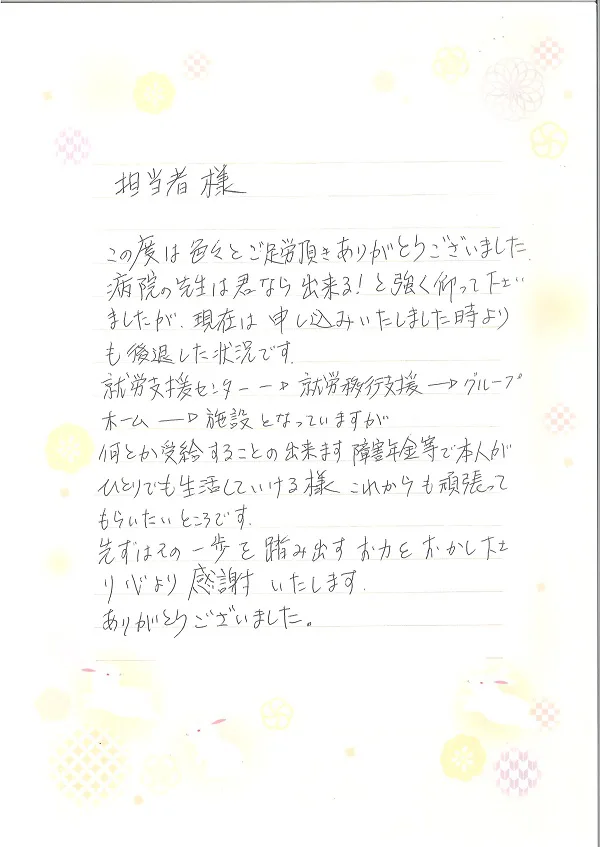 担当者様
この度は色々とご足労頂きありがとうございました.
病院の先生は君なら出来る!と強く仰って下さい
ましたが、現在は申し込みいたしました時より
も後退した状況です.
就労支援センター→就労移行支援→グループ
ホーム→施設となっていますが
何とか受給することの出来ます障害年金等で本人が
ひとりでも生活していける様これからも頑張って
もらいたいところです.
先ずはその一歩を踏み出すお力をおかし下さ
り心より感謝いたします.
ありがとうございました。